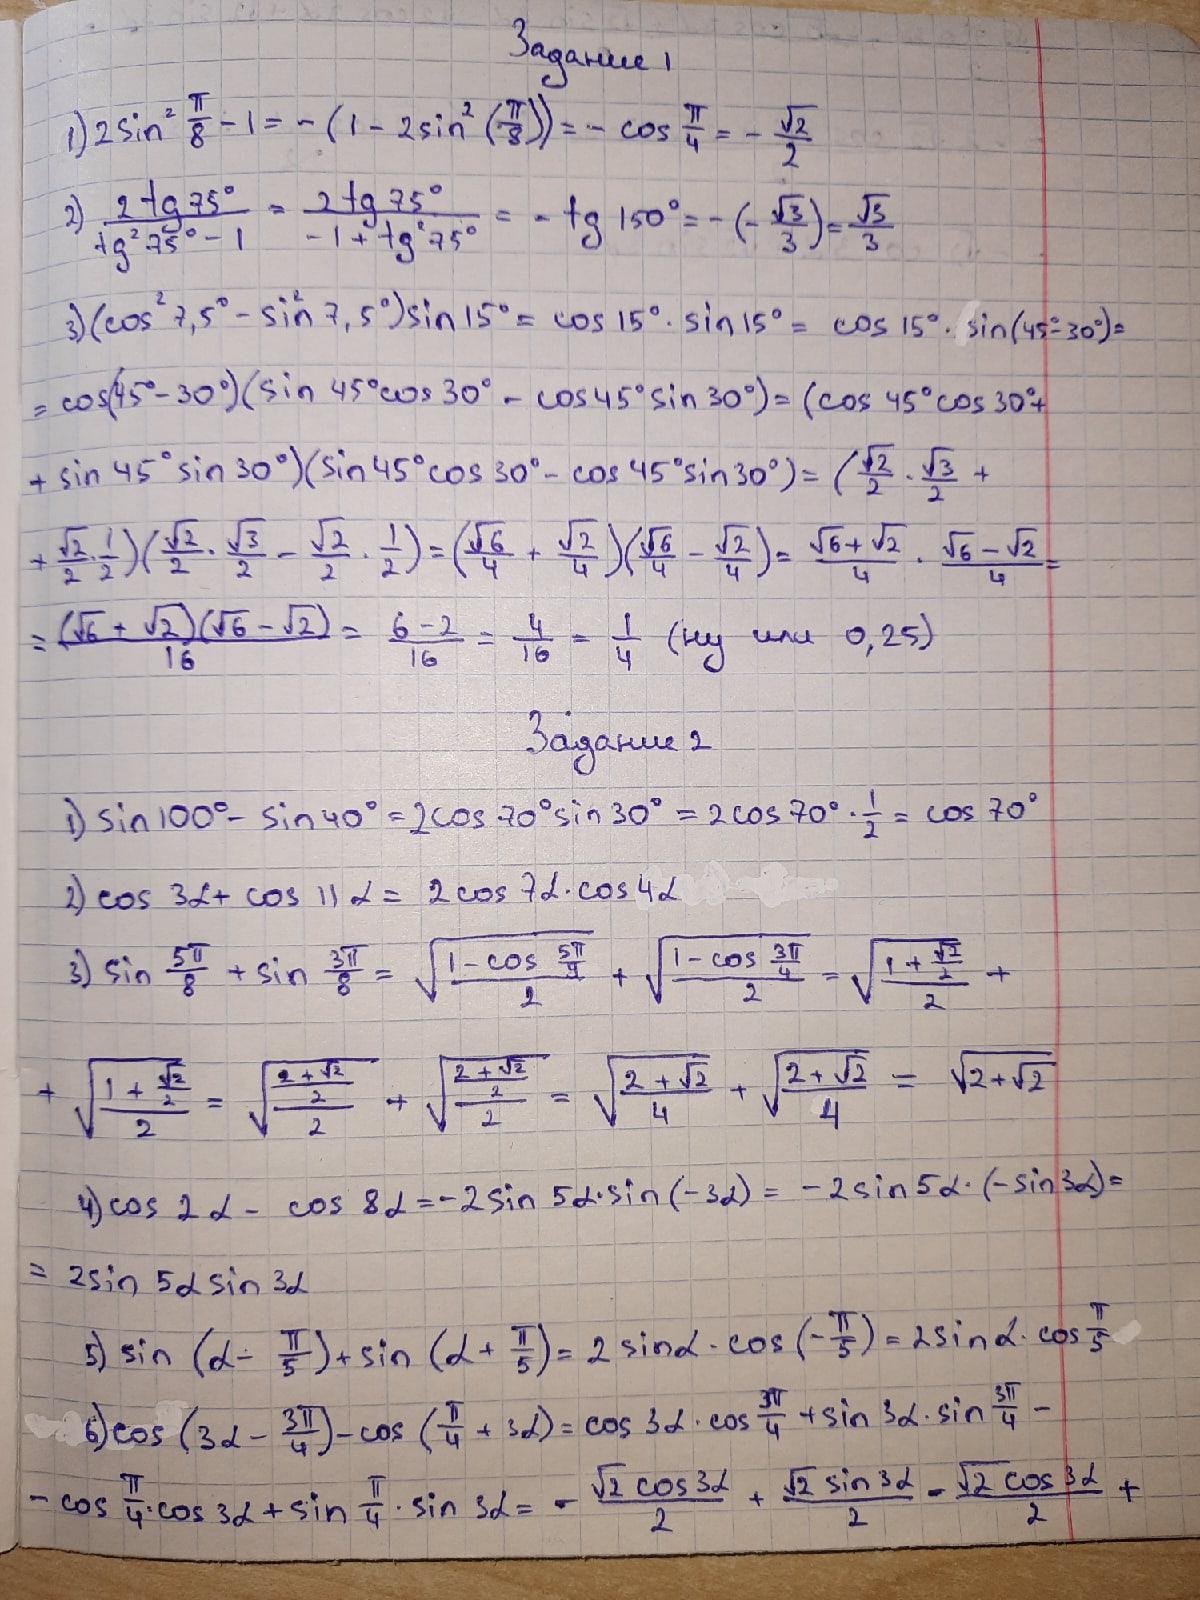 Задание 1
1) 2sin² π/8 - 1 = -(1 - 2sin² (π/8)) = - cos π/4 = - √2/2
2) 2tg75°/tg²75° - 1 = 2tg75°/-1 + tg²75° = - tg 150° = -(-√3/3) = √3/3
3) (cos² 7,5° - sin² 7,5°) sin15° = cos15° · sin15° = cos15° · sin(45° - 30°) =
= cos(45° - 30°)(sin 45° cos 30° - cos45° sin30°) = (cos 45° cos 30° +
+ sin 45° sin 30°)(sin45° cos 30° - cos 45° sin30°) = (√2/2 · √3/2 +
+ √2/2 · 1/2)(√2/2 · √3/2 - √2/2 · 1/2) = (√6/4 + √2/4)(√6/4 - √2/4) = √6+√2/4 · √6-√2/4 =
= (√6 + √2)(√6 - √2)/16 = 6-2/16 = 4/16 = 1/4 (ну или 0,25)
Задание 2
1) sin100° - sin40° = 2cos70° sin30° = 2cos70° · 1/2 = cos 70°
2) cos 3α + cos 11α = 2cos 7α · cos4α
3) sin 5π/8 + sin 3π/8 = √(1-cos 5π/4 / 2) + √(1-cos 3π/4 / 2) = √(1+√2/2 / 2) +
+ √(1+√2/2 / 2) = √(2+√2/2 / 2) + √(2+√2/2 / 2) = √(2+√2 / 4) + √(2+√2 / 4) = √(2+√2)
4) cos 2α - cos 8α = -2sin 5α · sin(-3α) = -2sin5α · (-sin3α) =
= 2sin 5α sin 3α
5) sin (α - π/5) + sin (α + π/5) = 2sinα · cos(-π/5) = 2sinα · cos π/5
6) cos (3α - 3π/4) - cos (π/4 + 3α) = cos 3α · cos 3π/4 + sin 3α · sin 3π/4 -
- cos π/4 · cos 3α + sin π/4 · sin 3α = - √2 cos3α/2 + √2 sin3α/2 - √2 cos 3α/2 +